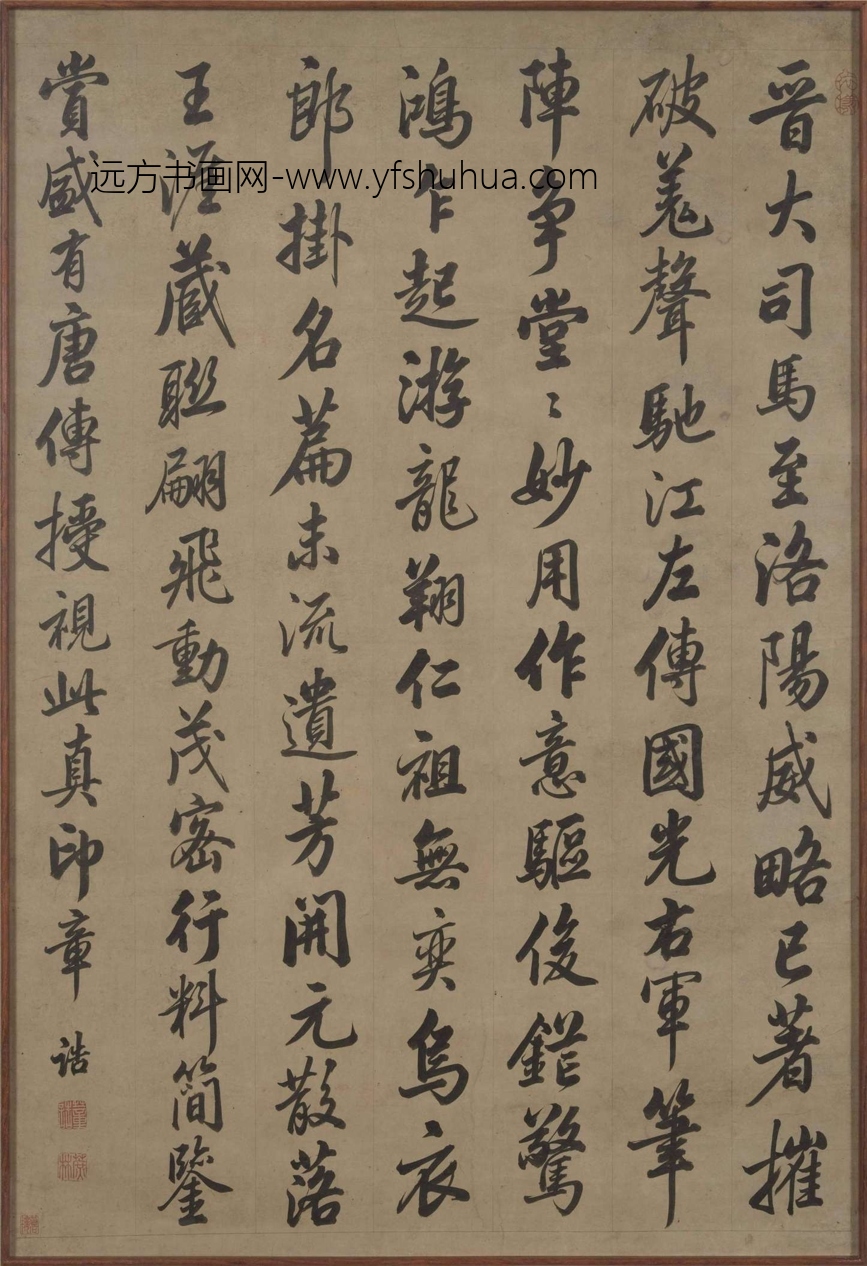 晋大司馬至洛陽威略已著摧
破羗聲馳江左傳國光右軍筆
陣爭堂〻妙用作意驅俊鋩驚
鴻乍起游龍翔仁祖無奕烏衣
郎掛名篇末流遺芳開元散落
王涯蔵聯翩飛動茂密行料簡鑒
賞盛有唐傳授視此真印章
誥
远方书画网-www.yfshuhua.com